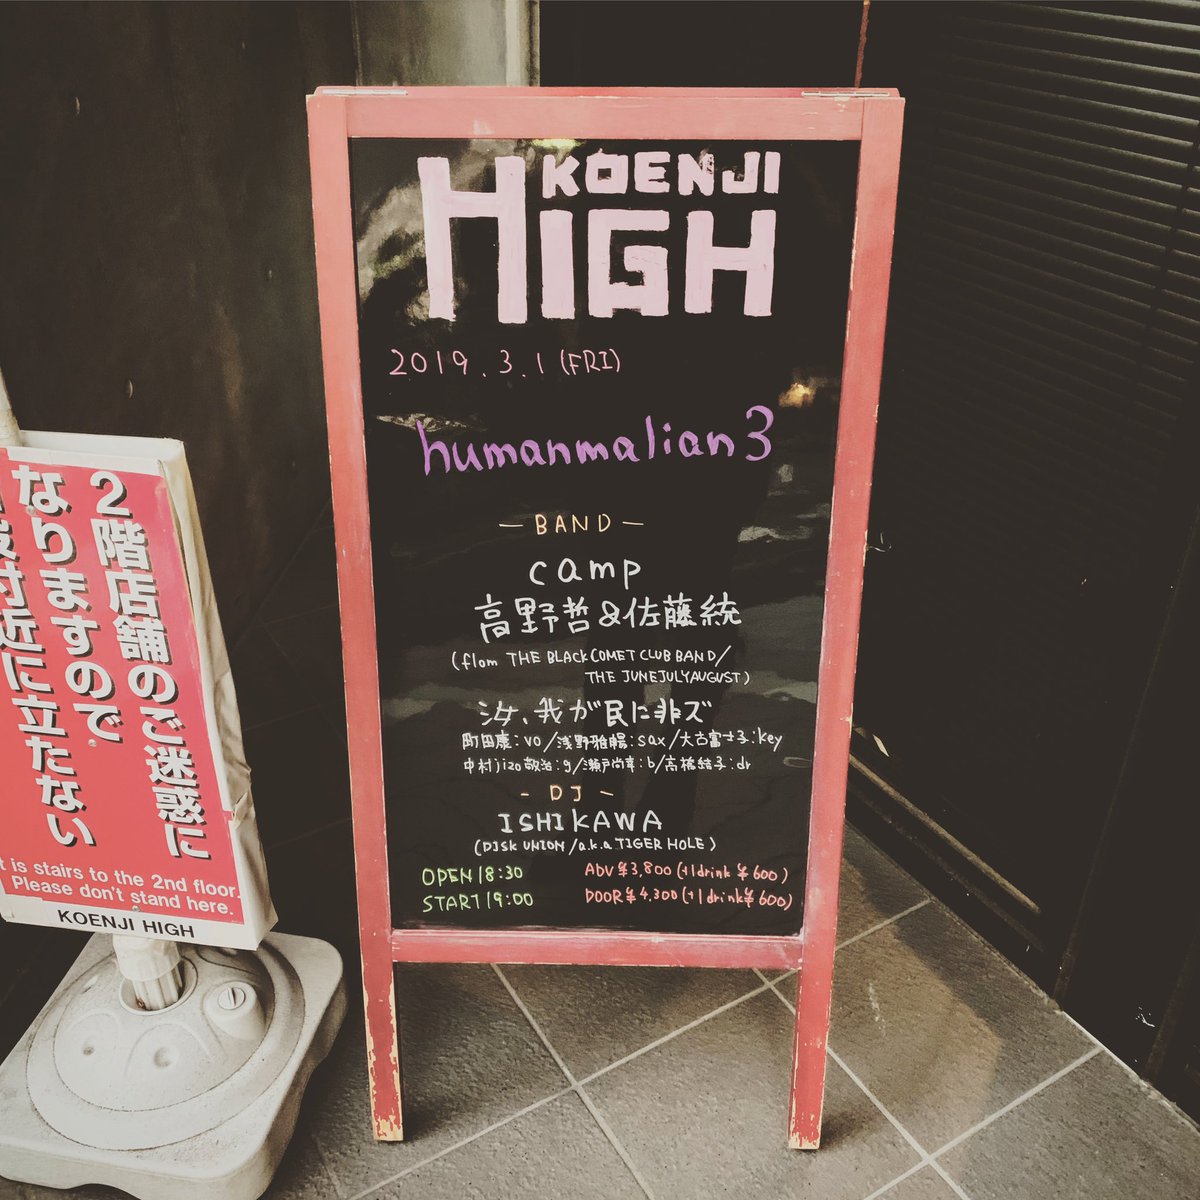 KOENJI
HIGH
2019.3.1(FRI)
humanmalian3
— BAND —
camp
高野哲&佐藤統
(flom THE BLACK COMET CLUB BAND/
THE JUNEJULYAUGUST)
汝、我が民に非ズ
町田康:vo/浅野雅暢:sax/大古富士子:key
中村jizo敬治:g/瀬戸尚幸:b/高橋結子:dr
- DJ -
ISHIKAWA
(DISK UNION/a.k.a TIGER HOLE)
OPEN 18:30
START 19:00
ADV ¥3,800(+1drink ¥600)
DOOR ¥4,300(+1drink¥600)
2階店舗のご迷惑に
なりますので
付近に立たない
t is stairs to the 2nd floor.
Please don't stand here.
KOENJI HIGH